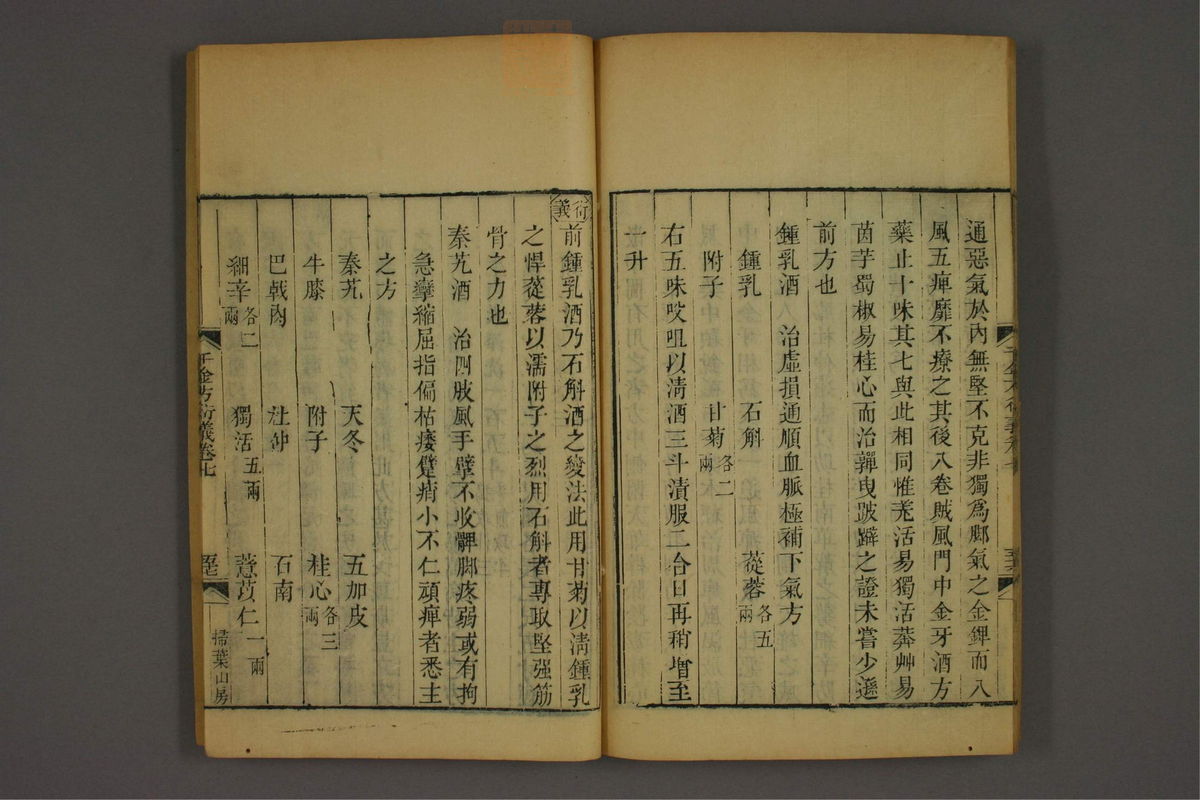 通惡氣於內無堅不克非獨爲腳氣之金鎞而八
風五痺靡不療之其後八卷賊風門中金牙酒方
藥止十味其七與此相同惟羌活易獨活莽艸易
茵芋蜀椒易桂心而治嚲曳跛躃之證未嘗少遜
前方也
鍾乳酒 治虛損通順血脈極補下氣方
鍾乳 石斛 蓯蓉各五兩
附子 甘菊各二兩
右五味㕮咀以淸酒三斗漬服二合日再稍增至
一升
衍義前鍾乳酒乃石斛酒之變法此用甘菊以淸鍾乳
之悍蓯蓉以濡附子之烈用石斛者專取堅强筋
骨之力也
秦艽酒 治四肢風手臂不收髀腳疼弱或有拘
急攣縮屈指偏枯痿躄痟小不仁頑痺者悉主
之方
秦艽 天冬 五加皮
牛膝 附子 桂心各三兩
巴戟肉 杜仲 石南
細辛各二兩 獨活五兩 薏苡仁一兩
千金方衍義卷七
掃葉山房